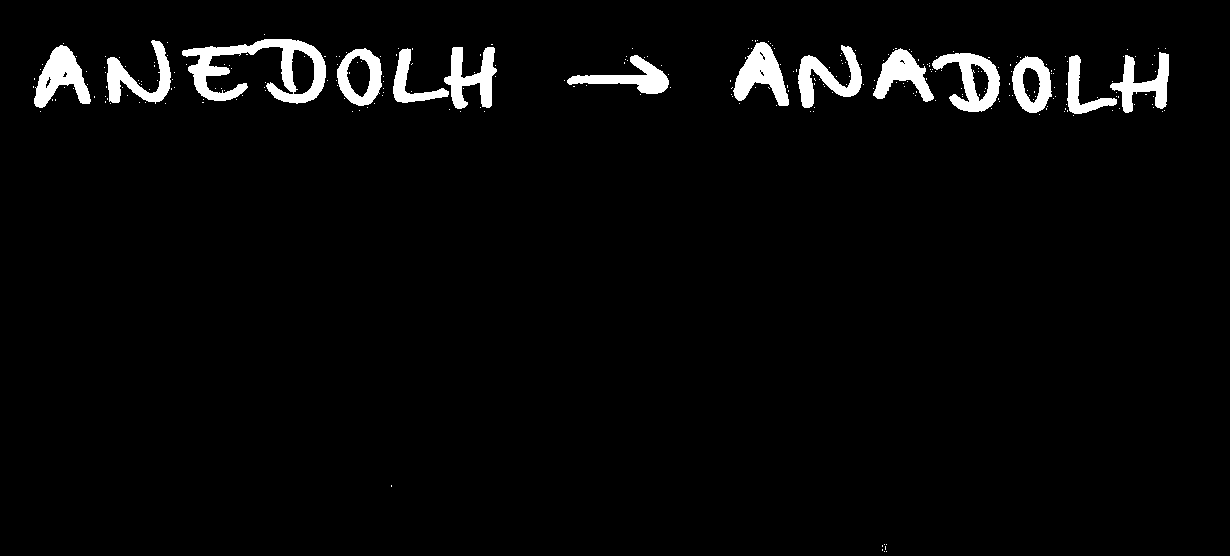 ANEDOLH → ANADOLH